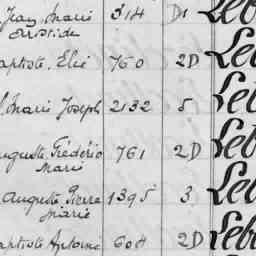 Jean Marie 314 D1 Leb
Aristide
aptiste. Elie 760 2D Leb
Marie Joseph 2132 5 Leb
uguste Frédéric 761 2D Leb
Marie
Auguste Pierre 1395 3 Leb
Marie
aptiste Antoine 604 2D Leb